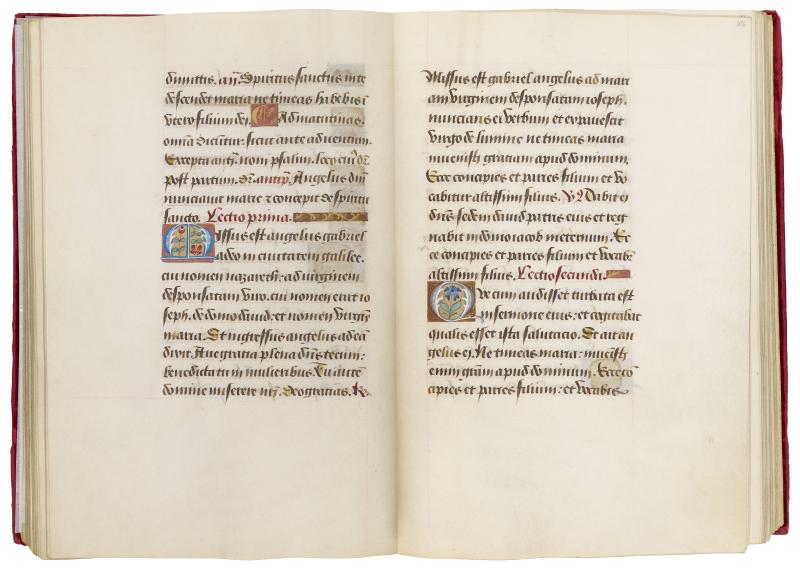 dimittis. an̄. Spiritus sanctus in te
descendet maria ne timeas habebis ī
vtero filium dei. Ad matutinas.
omnia dicuntur sicut ante aduentum.
Excepta
post partum. Angelus dn̄i
nunciauit marie &amp; concepit de spiritu
sancto. Lectio prima.
Missus est angelus gabriel
a deo in ciuitatem galilee.
cui nomen nazareth: ad virginem
desponsatam viro. cui nomen erat io
seph. de domo dauid: et nomen virgīs
maria. Et ingressus angelus ad eā
dixit. Aue gratia plena dn̄s tecum:
benedicta tu in mulieribus. Tu autē
domine miserere nr̄i. Deo gratias. R
Missus est gabriel angelus ad mari
am virginem desponsatam ioseph.
nuncians ei verbum et expauescit
virgo de lumine ne timeas maria
inuenisti gratiam apud dominum.
Ecce concipies et paries filium et vo
cabitur altissimi filius. Dabit ei
dn̄s sedem dauid patris eius et reg
nabit in domo iacob in eternum. Ec
ce concipies et paries filium et vocabit̄
altissimi filius. Lectio secunda.
Que cum audisset turbata est
in sermone eius: et cogitabat
qualis esset ista salutacio. Et ait an
gelus ei. Ne timeas maria: inuenisti
enim grām apud dominum. Ecce cō
cipies et paries filium: et vocabis